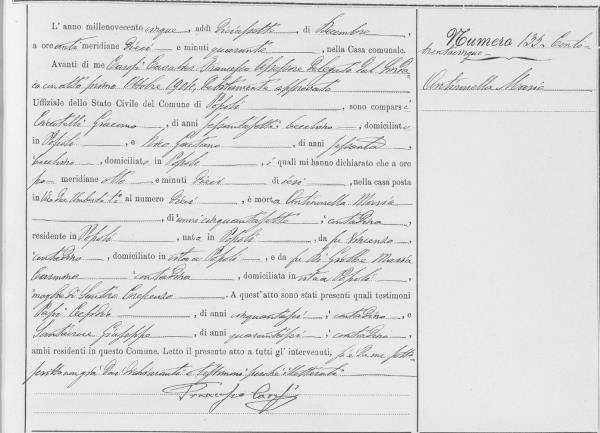 L'anno millenovecento cinque, addì diciasette, di Decembre,
a ore anti meridiane dieci e minuti quaranta, nella Casa comunale.
Avanti di me Carosi Cavalier Francesco Assessore delegato dal Sindaco
con atto primo Ottobre 1904, debitamente approvato
Uffiziale dello Stato Civile del Comune di Popoli, sono comparsi
Giacomo, di anni sessantasette, becchino, domiciliato
in Popoli, e Gaetano, di anni sessanta
becchino, domiciliato in Popoli, i quali mi hanno dichiarato che a ore
po meridiane otto e minuti dieci di ieri, nella casa posta
in Via Re Umberto 1° al numero dieci, è morta Antinarella Maria
, di anni cinquantasette, contadina,
residente in Popoli, nata in Popoli, da fu Vincenzo,
contadino, domiciliato in vita a Popoli, e da fu Maria
Carmina, contadina, domiciliata in vita a Popoli,
moglie di Santoro Crescenzo. A quest'atto sono stati presenti quali testimoni
, di anni cinquantasei, contadino, e
Santacroce Giuseppe, di anni quarantasei, contadino,
ambi residenti in questo Comune. Letto il presente atto a tutti gl'intervenuti, si è da me sotto
scritto non già dai dichiaranti e testimoni perché illetterati
Francesco Carosi
Numero 135 Cento
trentacinque
Antinarella Maria